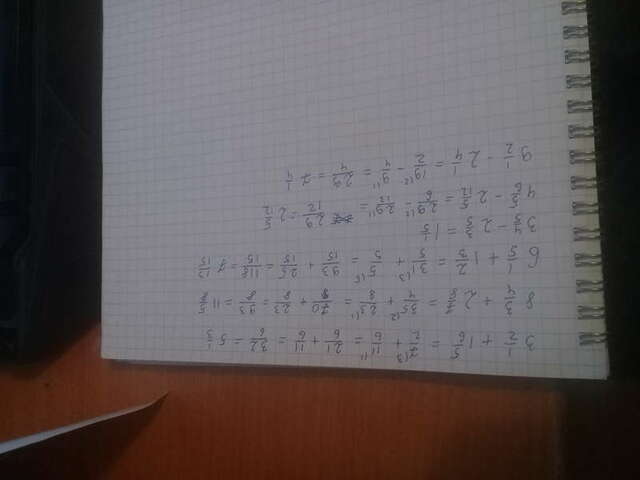 3 1/2 + 1 5/6 = 7/2 \3 + 11/6 \1 = 21/6 + 11/6 = 32/6 = 5 1/3
8 3/4 + 2 7/8 = 35/4 \2 + 23/8 \1 = 70/8 + 23/8 = 93/8 = 11 5/8
6 1/5 + 1 2/3 = 31/5 \3 + 5/3 \5 = 93/15 + 25/15 = 118/15 = 7 13/15
3 4/5 - 2 3/5 = 1 1/5
4 5/6 - 2 5/12 = 29/6 \2 - 29/12 \1 = 29/12 = 2 5/12
9 1/2 - 2 1/4 = 19/2 \2 - 9/4 \1 = 29/4 = 7 1/4